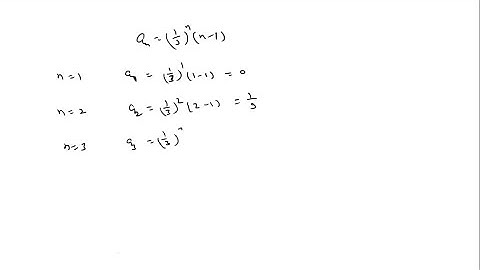 aₙ = (1/3)ⁿ (n-1)
n=1 a₁ = (1/3)¹ (1-1) = 0
n=2 a₂ = (1/3)² (2-1) = 1/9
n=3 a₃ = (1/3)ⁿ